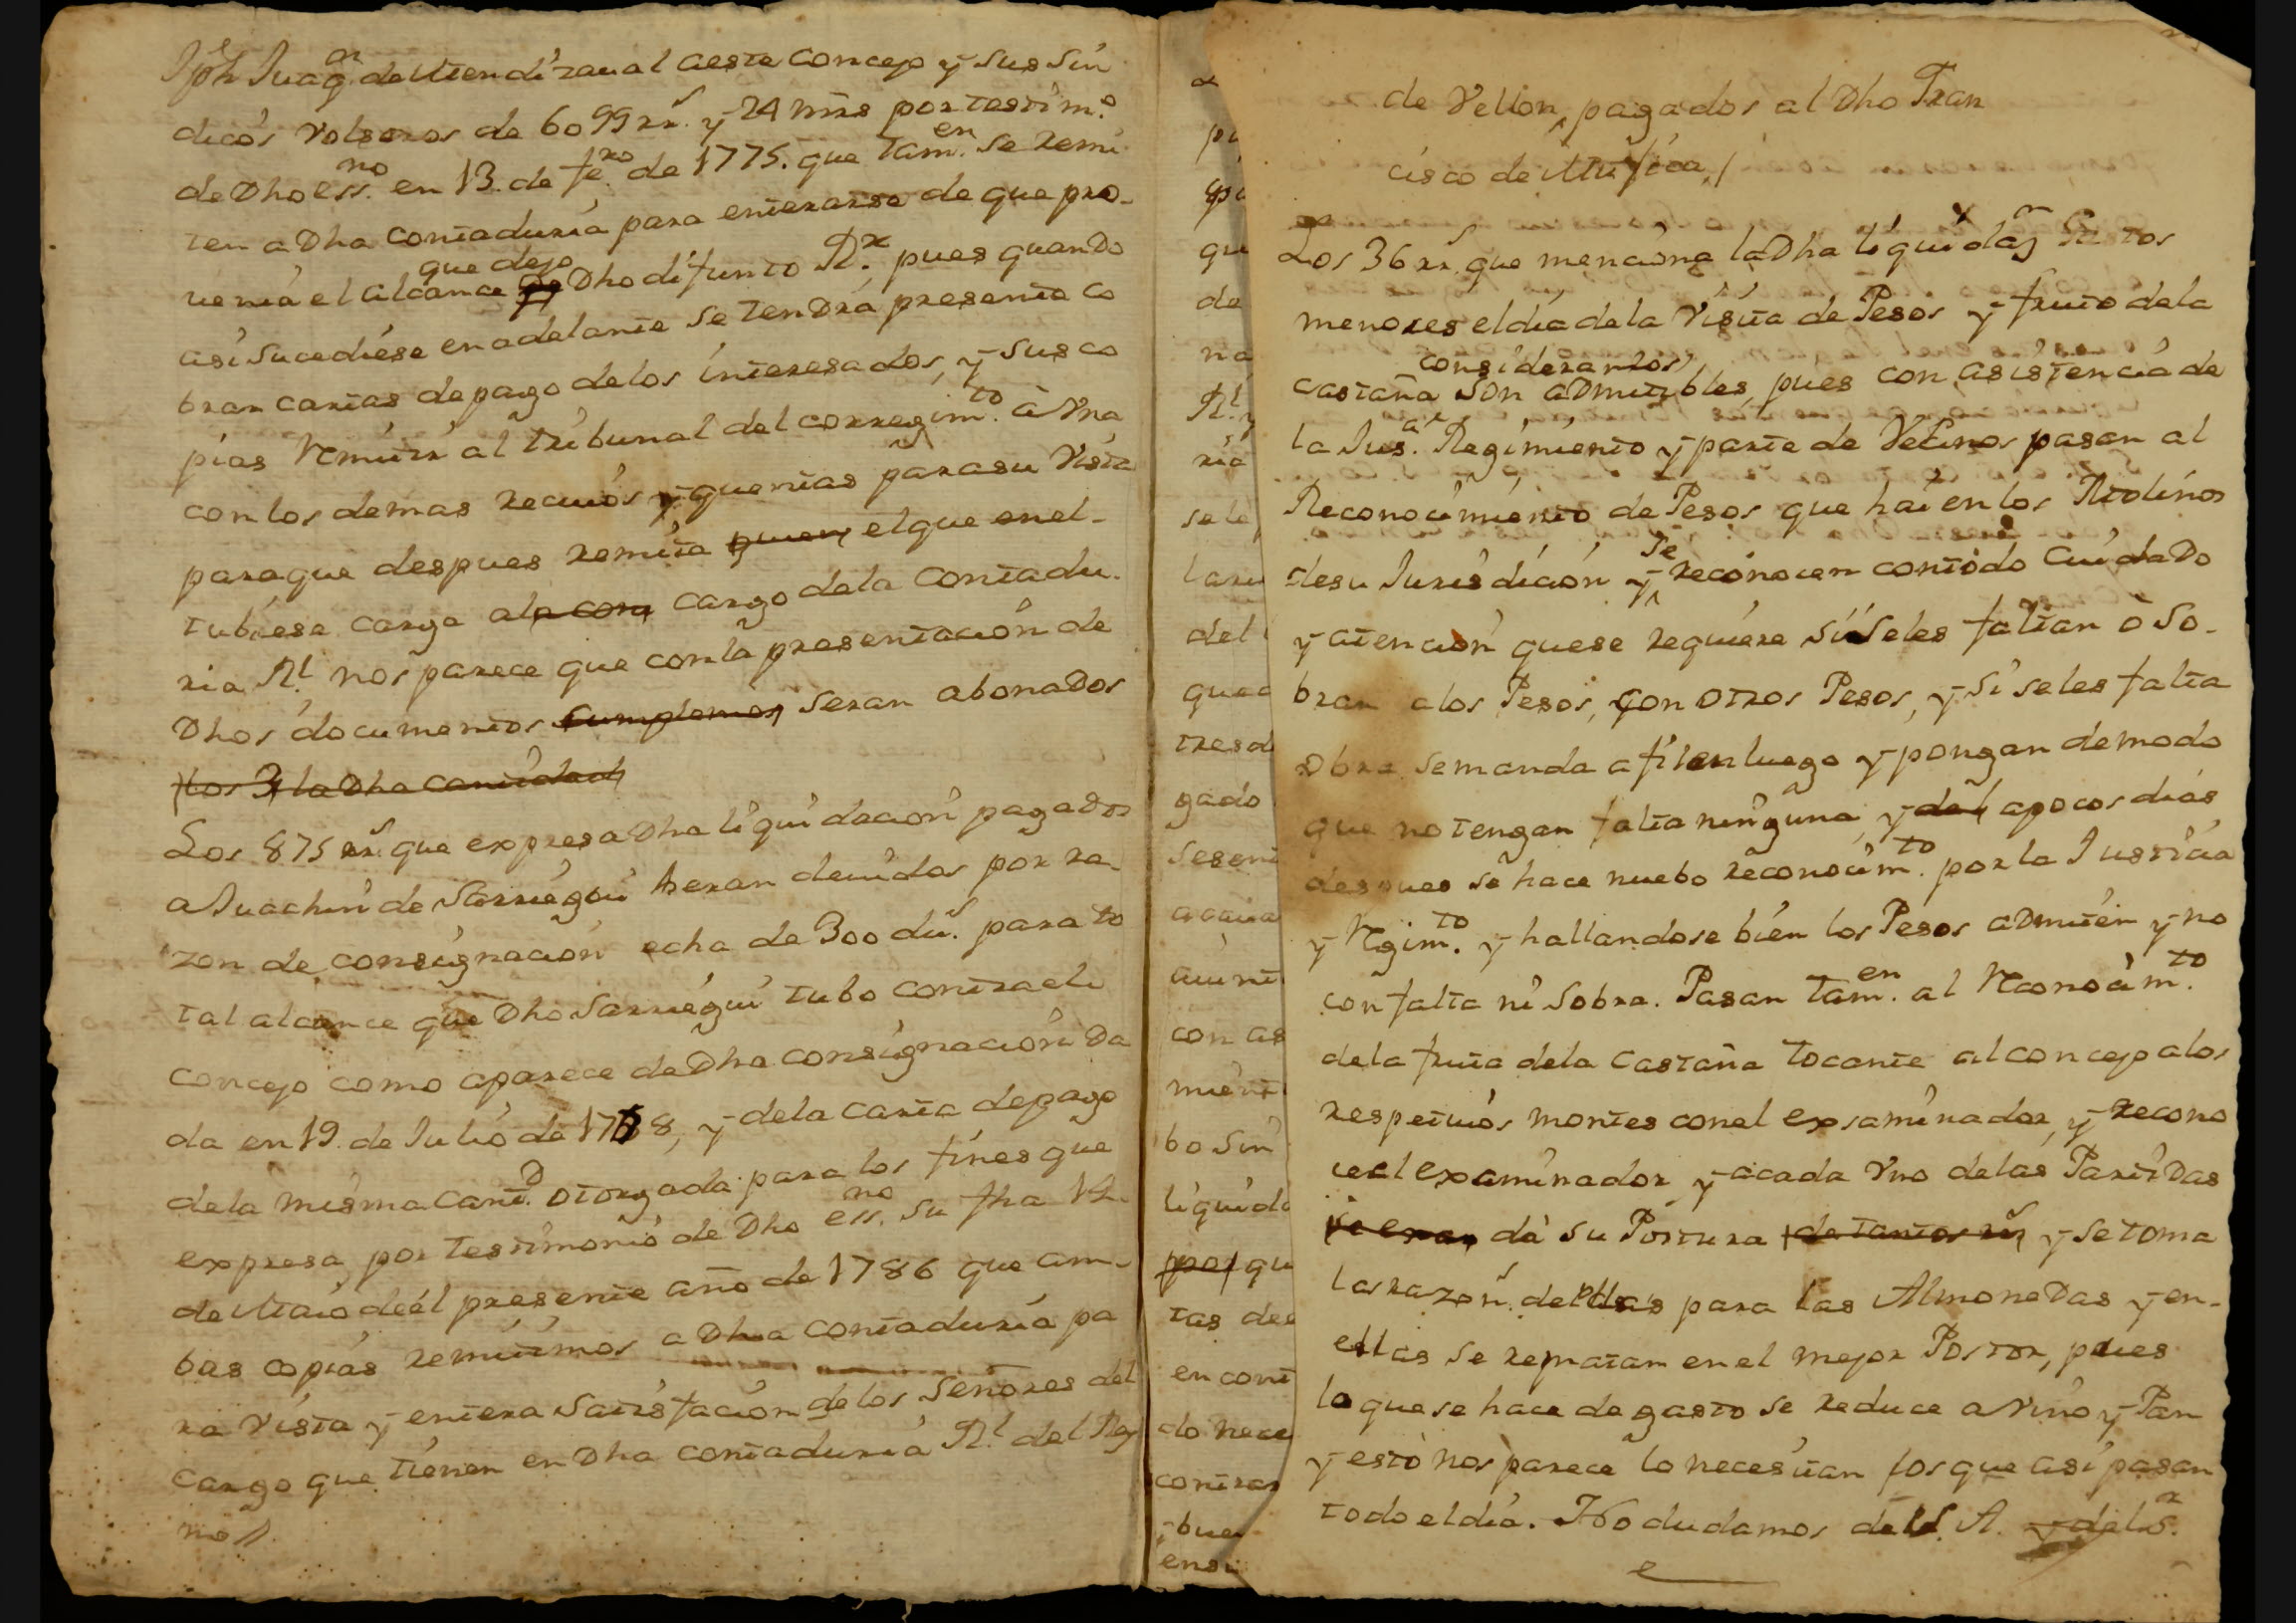 Jph Juaqn. de Mendizaual a este Concejo y sus sin
dicos Volseros de 6099 rrs. y 24 mrs por testimo.
de Dho essno. en 13. de fero. de 1775. que tamen. se remi
ten a Dha Contaduria para enterarse de que pro-
uenia el alcance que dejo Dho difunto Rr. pues quando
asi sucediese en adelante se tendrá presente co
brar cartas de pago de los interesados, y sus co
pias Remitir al tribunal del corregimto. à Vna
con los demas reciuos y quentas para su Vista
para que despues remita quien el que en el-
tubiese carga a la con cargo de la Contadu-
ria Rl. nos parece que con la presentación de
Dhos documentos cumplemos seran abonados
los 3 la Dha cantidad
Los 875 rrs. que expresa Dha liquidacion pagados
a Juachin de Sarriegui heran deuidos por ra-
zon de consignación echa de 300 dus. para to
tal alcance que Dho Sarriegui tubo contra el
Concejo como aparece de Dha consignación Da
da en 19. de Julio de 1768, y de la carta de pago
de la misma cantd. otorgada para los fines que
expresa, por testimonio de Dho essno. su fha 14.
de Maio de él presente año de 1786 que am-
bas copias remitimos a Dha contaduria pa
ra Vista y entera satisfación de los Señores del
cargo que tienen en Dha contaduria Rl. del Rey
no//.
pu
qu
que
de
na
Rl. y
ria
se le
del
gado
con as
bo sin
liquida
por qu
tas de
en cont
do nece
contra
y bue
de Vellon, pagados al Dho Fran
cisco de Mugica/
Los 36 rrs. que menciona la Dha liquidaon Gastos
menores el dia de la Visita de Pesos y fruto de la
castaña considerarlos son admitibles, pues con asistencia de
la Jusa. Regimiento y parte de Vecinos pasan al
Reconocimiento de Pesos que hai en los Molinos
de su Jurisdición y se reconocen con todo Cuidado
y atención que se requiere si se les faltan ò so-
bran a los Pesos, con otros Pesos, y si se les falta
obra se manda afilen luego y pongan de modo
que no tengan falta ninguna, y del a pocos dias
despues se hace nuebo reconocimto. por la Justicia
y Regimto. y hallandose bien los Pesos admiten y no
con falta ni sobra. Pasan tamen. al Reconocimto.
de la fruta de la Castaña tocante al concejo a los
respetiuos montes con el exsaminador, y recono
ce el examinador y a cada Vno de las Partidas
se exam dà su Postura de tantos rrs y se toma
las razon. de ellas para las Almonedas y en-
ellas se rematan en el mejor Postor, pues
lo que se hace de gasto se reduce a Vino y Pan
y esto nos parece lo necesitan los que asi pasan
todo el dia. No dudamos de V. A. y de los